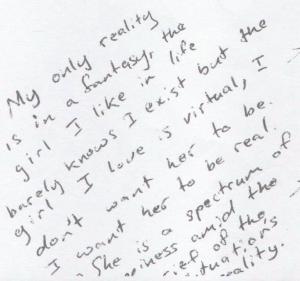 My only reality
is in a fantasy. the
girl I like in life
barely knows I exist but the
girl I love is virtual, I
don't want her to be.
I want her to be real.
She is a spectrum of
iness amid the
ief of the
ituations
eality.